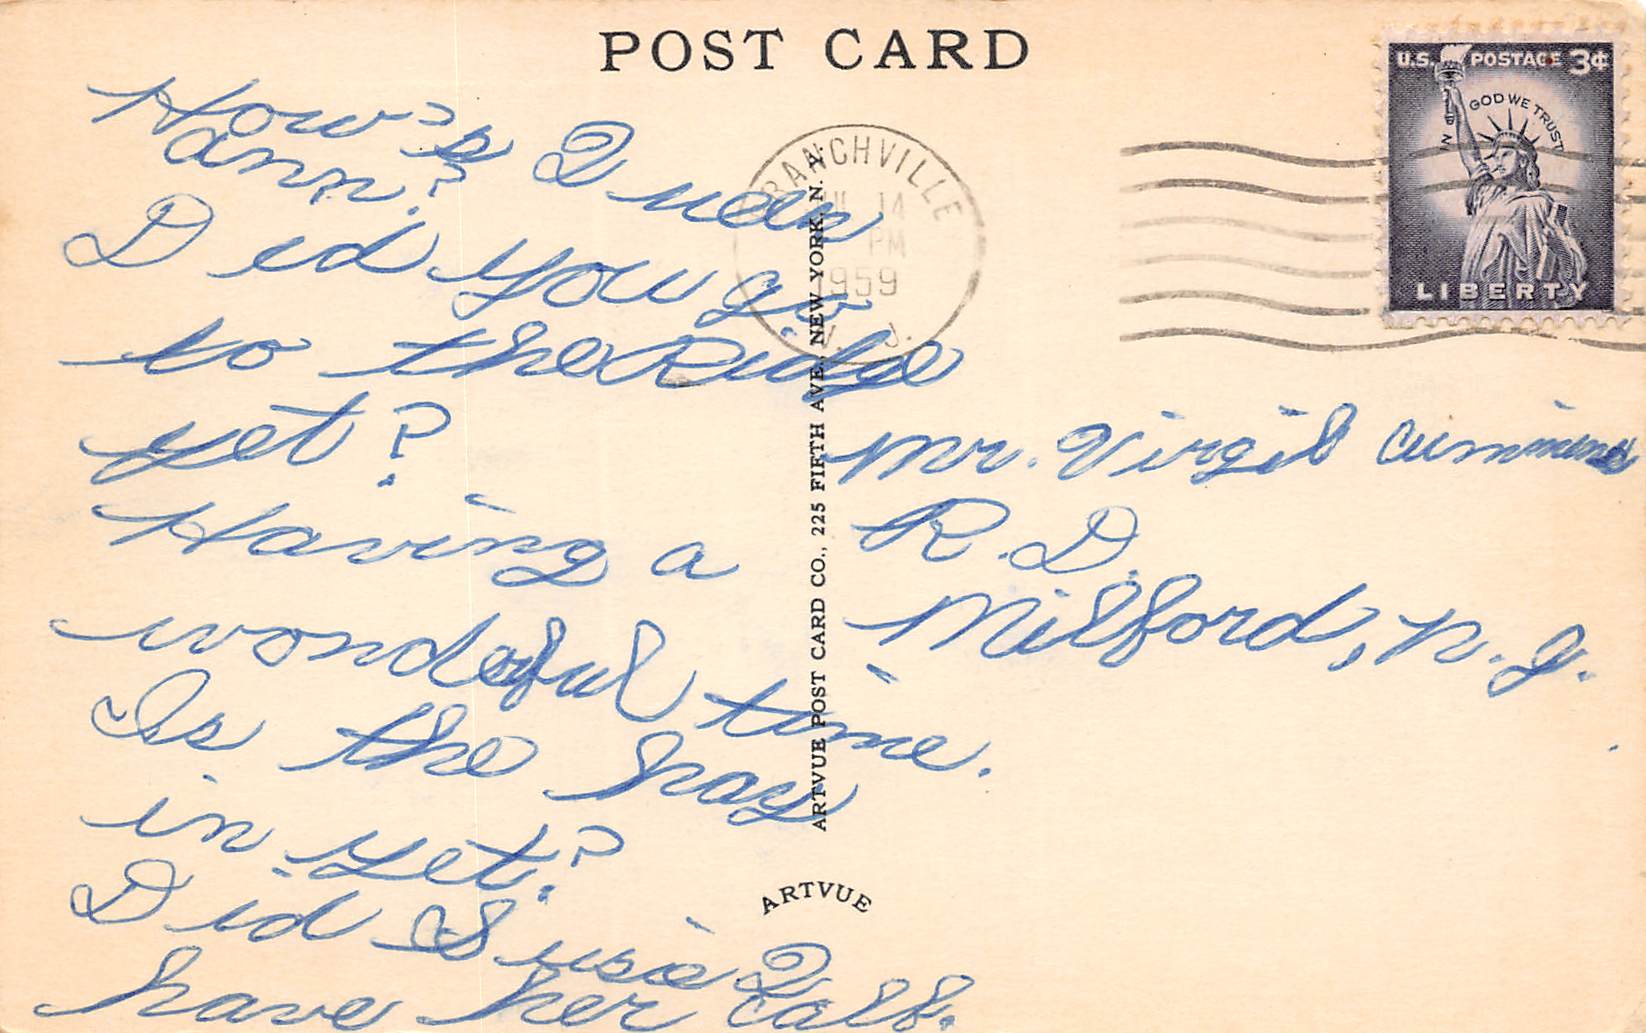 POST CARD
How's Quan
Ann?
Did you go
to the Ridge
yet?
Having a
wondeful time.
Is the hay
in yet?
Did Susie Q
have her calf.
BRANCHVILLE
JUL 14
PM
1959
N. J.
U.S. POSTAGE 3¢
IN GOD WE TRUST
LIBERTY
Mr. Virgil Cummins
R.D.
Milford, N.J.
ARTVUE POST CARD CO., 225 FIFTH AVE., NEW YORK, N. Y.
ARTVUE